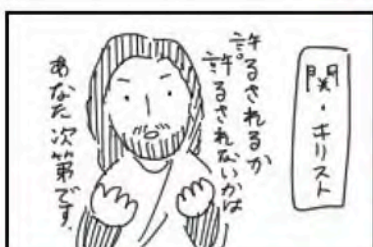 関・キリスト
許るされるか
許るされないかは
あなた次第です。